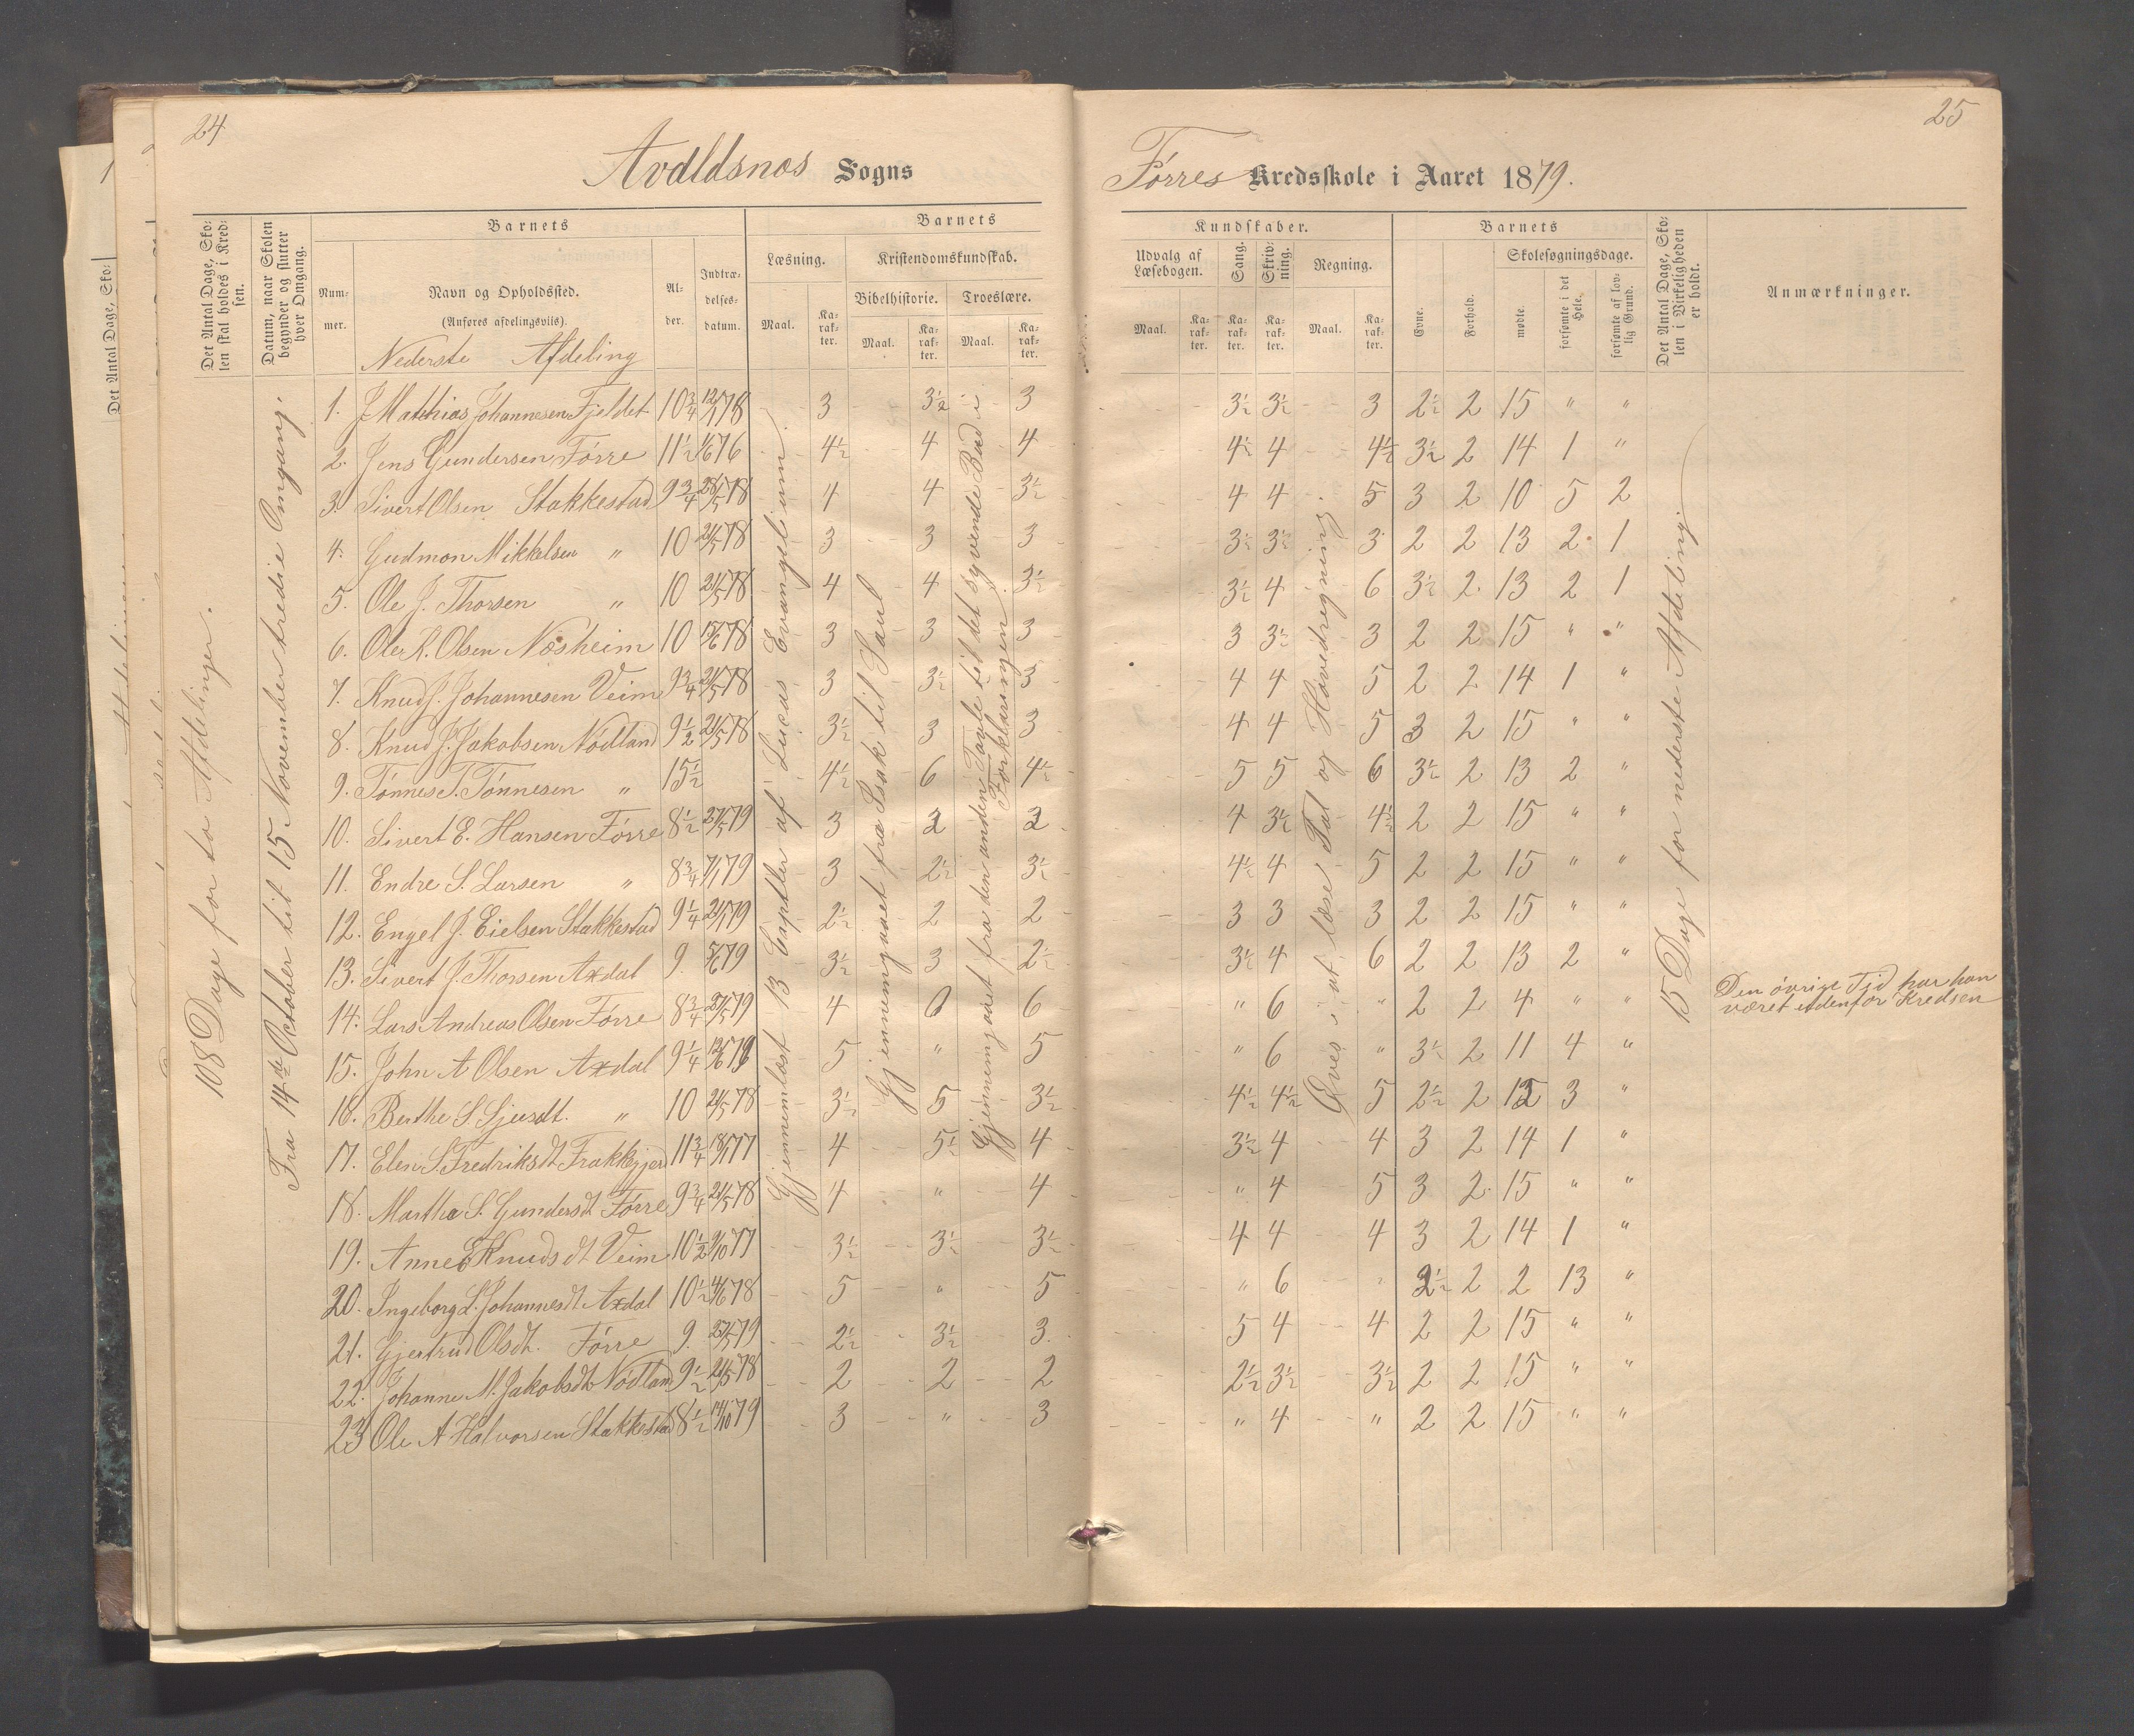 24
Avaldsnes Sogns
Det Antal Dage, Sko-
len skal holdes i Kred-
sen.
Datum, naar Skolen
begynder og slutter
hver Omgang.
Barnets
Num-
mer.
Navn og Opholdssted.
(Anføres afdelingsviis).
Al-
der.
Indtræ-
delses-
datum.
Læsning.
Maal.
Ka-
rak-
ter.
Barnets
Kristendomskundskab.
Bibelhistorie.
Maal.
Ka-
rak-
ter.
Troeslære.
Maal.
Ka-
rak-
ter.
Nederste Afdeling
108 Dage for to Afdelinger.
Fra 14de October til 15 November tredie Omgang.
Gjennemlæst 13 Capitler af Lucas Evangelium.
Gjennemgaaet fra Isak til Saul
Gjennemgaaet fra den anden Tavle til det syvende Bud i
Forklaringen.
1. J Mathias Johannesen Fjeldet 10 3/4 12/1 78 3 3 1/2 3
2. Jens Gundersen Førre 11 1/2 1/6 76 4 1/2 4 4
3. Sivert Olsen Stakkestad 9 3/4 28/5 78 4 4 3 1/2
4. Gudmon Mikkelsen " 10 21/5 78 3 3 3
5. Ole J. Thorsen " 10 21/5 78 4 4 3 1/2
6. Ole K. Olsen Næsheim 10 15/6 78 3 3 3
7. Knud J. Johannesen Veim 9 3/4 21/5 78 3 3 1/2 3
8. Knud J. Jakobsen Nødland 9 1/2 21/5 78 3 1/2 3 3
9. Tønnes T. Tønnesen " 15 1/2 4 1/2 6 4 1/2
10. Sivert E. Hansen Førre 8 1/2 27/5 79 3 2 2
11. Endre S. Larsen " 8 3/4 7/1 79 3 2 1/2 3 1/2
12. Engel J. Eielsen Stakkestad 9 1/4 21/1 79 2 1/2 2 2
13. Sivert J. Thorsen Axdal 9. 5/6 79 3 1/2 3 2 1/2
14. Lars Andreas Olsen Førre 8 3/4 27/5 79 4 6 6
15. John A Olsen Axdal 9 1/4 12/6 79 5 " 5
16. Berthe S Sjursdt. " 10 21/5 78 3 1/2 5 3 1/2
17. Elen S. Fredriksdt Frakkegjerd 11 3/4 18/1 77 4 5 1/2 4
18. Martha S. Gundersdt Førre 9 3/4 21/5 78 4 " 4
19. Anne Knudsdt Veim 10 1/2 9/10 77 3 1/2 3 1/2 3 1/2
20. Ingeborg L. Johannesdt Axdal 10 1/2 4/6 78 5 " 5
21. Gjertrud Olsdt. Førre 9. 27/5 79 2 1/2 3 1/2 3
22. Johanne M. Jakobsdt Nødland 9 1/2 21/5 78 2 2 2
23 Ole A Halvorsen Stakkestad 8 1/2 14/10 79 3 " 3
25
Førres Kredsskole i Aaret 1879.
Kundskaber.
Udvalg af
Læsebogen.
Maal.
Ka-
rak-
ter.
Sang.
Ka-
rak-
ter.
Skriv-
ning.
Ka-
rak-
ter.
Regning.
Maal.
Ka-
rak-
ter.
Barnets
Evne.
Forhold.
Skolesøgningsdage.
mødte.
forsømte i det
Hele.
forsømte af lov-
lig Grund.
Det Antal Dage, Sko-
len i Virkeligheden
er holdt.
Anmærkninger.
Øves i at læse Tal og Hovedregning
15 Dage for nederste Afdeling.
3 1/2 3 1/2 3 2 1/2 2 15 " "
4 1/2 4 4 1/2 3 1/2 2 14 1 "
4 4 5 3 2 10 5 2
3 1/2 3 1/2 3 2 2 13 2 1
3 1/2 4 6 3 1/2 2 13 2 1
3 3 1/2 3 2 2 15 " "
4 4 5 2 2 14 1 "
4 4 5 3 2 15 " "
5 5 6 3 1/2 2 13 2 "
4 3 1/2 4 1/2 2 2 15 " "
4 1/2 4 5 2 2 15 " "
3 3 3 2 2 15 " "
3 1/2 4 6 2 2 13 2 "
" 6 " 2 2 4 " " Den øvrige Tid har han
været udenfor Kredsen
" 6 " 3 1/2 2 11 4 "
4 1/2 4 1/2 5 2 1/2 2 12 3 "
3 1/2 4 4 3 2 14 1 "
" 4 5 3 2 15 " "
4 4 4 3 2 14 1 "
" 6 " 2 1/2 2 2 13 "
5 4 4 2 2 15 " "
2 1/2 3 1/2 3 1/2 2 2 15 " "
" 4 " 2 2 15 " "